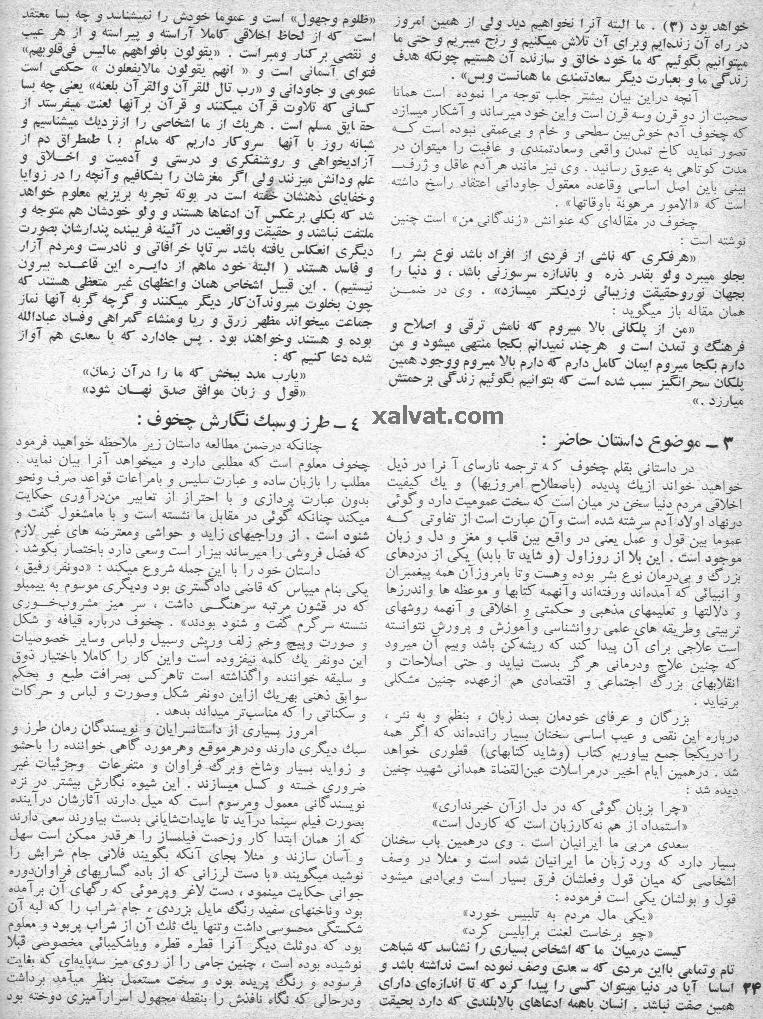 خواهد بود (۳) . ما البته آنرا نخواهیم دید ولی از همین امروز
در راه آن زنده‌ایم وبرای آن تلاش میکنیم و رنج میبریم و حتی ما
میتوانیم بگوئیم که ما خود خالق و سازنده آن هستیم چونکه هدف
زندگی ما و بعبارت دیگر سعادتمندی ما همانست وبس» .
آنچه دراین بیان بیشتر جلب توجه مرا نموده است همانا
صحبت از دو قرن وسه قرن است واین خود میرساند و آشکار میسازد
که چخوف آدم خوش‌بین سطحی و خام و بی‌عمقی نبوده است کـه
تصور نماید کاخ تمدن واقعی وسعادتمندی و عافیت را میتوان در
مدت کوتاهی به عیوق رسانید . وی نیز مانند هر آدم عاقل و ژرف
بینی باین اصل اساسی وقاعده معقول جاودانی اعتقاد راسخ داشته
است که «الامور مرهونة باوقاتها» .
چخوف در مقاله‌ای که عنوانش «زندگانی من» است چنین
نوشته است :
«هرفکری که ناشی از فردی از افراد باشد نوع بشر را
بجلو میبرد ولو بقدر ذره و باندازه سرسوزنی باشد ، و دنیا را
بجهان نوروحقیقت وزیبائی نزدیکتر میسازد» . وی در ضمـن
همان مقاله باز میگوید :
«من از پلکانی بالا میروم که نامش ترقی و اصلاح و
فرهنگ و تمدن است و هرچند نمیدانم بکجا منتهی میشود و من
دارم بکجا میروم ایمان کامل دارم که دارم بالا میروم ووجود همین
پلکان سحرانگیز سبب شده است که بتوانیم بگوئیم زندگی بزحمتش
میارزد .»
۳ ـ موضوع داستان حاضر :
در داستانی بقلم چخوف که ترجمه نارسای آنرا در ذیل
خواهید خواند ازیك پدیده (باصطلاح امروزیها) و یك کیفیت
اخلاقی مردم دنیا سخن در میان است که سخت عمومیت دارد وگوئی
درنهاد اولاد آدم سرشته شده است وآن عبارت است از تفاوتی کـه
عموما بین قول و عمل یعنی در واقع بین قلب و مغز و دل و زبان
موجود است . این بلا از روزاول (و شاید تا باید) یکی از دردهای
بزرگ و بی‌درمان نوع بشر بوده وهست وتا بامروزآن همه پیغمبران
و انبیائی که آمده‌اند ورفته‌اند وآنهمه کتابها و موعظه ها واندرزها
و دلالتها و تعلیمهای مذهبی و حکمتی و اخلاقی و آنهمه روشهای
تربیتی وطریقه های علمی روانشناسی وآموزش و پرورش نتوانسته
است علاجی برای آن پیدا کند که ریشه‌کن باشد وبیم آن میرود
که چنین علاج ودرمانی هرگز بدست نیاید و حتی اصلاحات و
انقلابهای بزرگ اجتماعی و اقتصادی هم ازعهده چنین مشکلی
برنیاید .
بزرگان و عرفای خودمان بصد زبان ، بنظم و به نثر ،
درباره این نقص و عیب اساسی سخنان بسیار رانده‌اند که اگر همه
را دریکجا جمع بیاوریم کتاب (وشاید کتابهای) قطوری خواهد
شد . درهمین ایام اخیر درمراسلات عین‌القضاة همدانی شهید چنین
دیده شد :
«چرا بزبان گوئی که در دل ازآن خبرنداری»
«استمداد از هم نه‌کارزبان است که کاردل است»
سعدی مربی ما ایرانیان است . وی درهمین باب سخنان
بسیار دارد که ورد زبان ما ایرانیان شده است و مثلا در وصف
اشخاصی که میان قول وفعلشان فرق بسیار است وبی‌ادبی میشود
قول و بولشان یکی است فرموده :
«یکی مال مردم به تلبیس خورد»
«چو برخاست لعنت برابلیس کرد»
کیست درمیان ما که اشخاص بسیاری را نشناسد که شباهت
تام وتمامی بااین مردی که سعدی وصف نموده است نداشته باشد و
اساسا آیا در دنیا میتوان کسی را پیدا کرد که تا اندازه‌ای دارای
همین صفت نباشد . انسان باهمه ادعاهای بالابلندی که دارد بحقیقت
۲۴
«ظلوم وجهول» است و عموما خودش را نمیشناسد و چه بسا معتقد
است که از لحاظ اخلاقی کاملا آراسته و پیراسته و از هر عیب
و نقصی برکنار ومبراست . «یقولون بافواههم مالیس فی‌قلوبهم»
فتوای آسمانی است و « انهم یقولون مالایفعلون » حکمی است
عمومی و جاودانی و «رب تال للقرآن والقرآن یلعنه» یعنی چه بسا
کسانی که تلاوت قرآن میکنند و قرآن برآنها لعنت میفرستد از
حقایق مسلم است . هریك از ما اشخاصی را ازنزدیك میشناسیم و
شبانه روز با آنها سروکار داریم که مدام با طمطراق دم از
آزادیخواهی و روشنفکری و درستی و آدمیت و اخـلاق و
علم ودانش میزنند ولی اگر مغزشان را بشکافیم وآنچه را در زوایا
وخفایای ذهنشان خفته است در بوته تجربه بریزیم معلوم خواهد
شد که بکلی برعکس آن ادعاها هستند و ولو خودشان هم متوجه و
ملتفت نباشند و حقیقت وواقعیت در آئینه فریبنده پندارشان بصورت
دیگری انعکاس یافته باشد سرتاپا خرافاتی و نادرست ومردم آزار
و فاسد هستند ( البته خود ماهم از دایـره این قاعـده بیرون
نیستیم) . این قبیل اشخاص همان واعظهای غیر متعظی هستند که
چون بخلوت میروندآن‌کار دیگر میکنند و گرچه گربه آنها نماز
جماعت میخواند مظهر زرق و ریا ومنشاء گمراهی وفساد عبادالله
بوده و هستند وخواهند بود . پس جادارد که با سعدی هم آواز
شده دعا کنیم که :
«یارب مدد ببخش که ما را درآن زمان»
«قول و زبان موافق صدق نهـان شود»
xalvat.com
۴ ـ طرز وسبك نگارش چخوف :
چنانکه درضمن مطالعه داستان زیر ملاحظه خواهید فرمود
چخوف معلوم است که مطلبی دارد و میخواهد آنرا بیان نماید .
مطلب را بازبان ساده و عبارت سلیس و بامراعات قواعد صرف ونحو
بدون عبارت پردازی و با احتراز از تعابیر من‌درآوری حکایت
میکند چنانکه گوئی در مقابل ما نشسته است و با مامشغول گفت و
شنود است . از وراجیهای زاید و حواشی ومعترضه های غیر لازم
که فضل فروشی را میرساند بیزار است وسعی دارد باختصار بکوشد .
داستان خود را با این جمله شروع میکند : «دونفر رفیق ،
یکی بنام میپاس که قاضی دادگستری بود ودیگری موسوم به ییمبلو
که در قشون مرتبه سرهنگـی داشت ، سر میز مشروب‌خـوری
نشسته سرگرم گفت و شنود بودند» . چخوف درباره قیافه و شکل
و صورت وپیچ وخم زلف وریش وسبیل ولباس وسایر خصوصیات
این دونفر یك کلمه نیفزوده است واین کار را کاملا باختیار ذوق
و سلیقه خواننده واگذاشته است تاهرکس بصرافت طبع و بحکم
سوابق ذهنی بهریك ازاین دونفر شکل وصورت و لباس و حرکات
و سکناتی را که مناسب‌تر میداند بدهد .
امروز بسیاری از داستانسرایان و نویسندگان رمان طرز و
سبك دیگری دارند ودرهرموقع وهرمورد گاهی خواننده را باحشو
و زواید بسیار وشاخ وبرگ فراوان و متفرعات وجزئیات غیر
ضروری خسته و کسل میسازند . این شیوه نگارش بیشتر در نزد
نویسندگانی معمول ومرسوم است که میل دارند آثارشان درآینده
بصورت فیلم سینما درآید تا عایدات‌شایانی بدست بیاورند سعی دارند
که از همان ابتدا کار وزحمت فیلمساز را هرقدر ممکن است سهل
و آسان سازند و مثلا بجای آنکه بگویند فلانی جام شرابش را
نوشید میگویند «با دست لرزانی که از باده گساریهای فراوان‌دوره
جوانی حکایت مینمود ، دست لاغر وپرموئی که رگهای آن برآمده
بود وناخنهای سفید رنگ مایل بزردی ، جام شراب را که لبه آن
شکستگی محسوسی داشت وتنها یك ثلث آن از شراب پربود و معلوم
بود که دوثلث دیگر آنرا قطره قطره وباشکیبائی مخصوصی قبلا
نوشیده بوده است ، چنین جامی را از روی میز سه‌پایه‌ای که بغایت
فرسوده و رنگ پریده بود و سخت مستعمل بنظر میآمد برداشت
ودرحالی که نگاه نافذش را بنقطه مجهول اسرارآمیزی دوخته بود